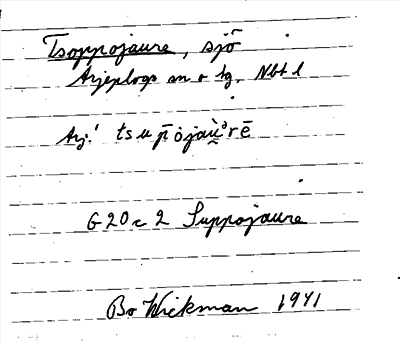 Tsoppojaure, sjö
Arjeplogs sn o tg. Nbt l
Arj.! tsup̄ȯjaù̯ᵊrē
G20c2 Suppojaure
Bo Wickman 1941